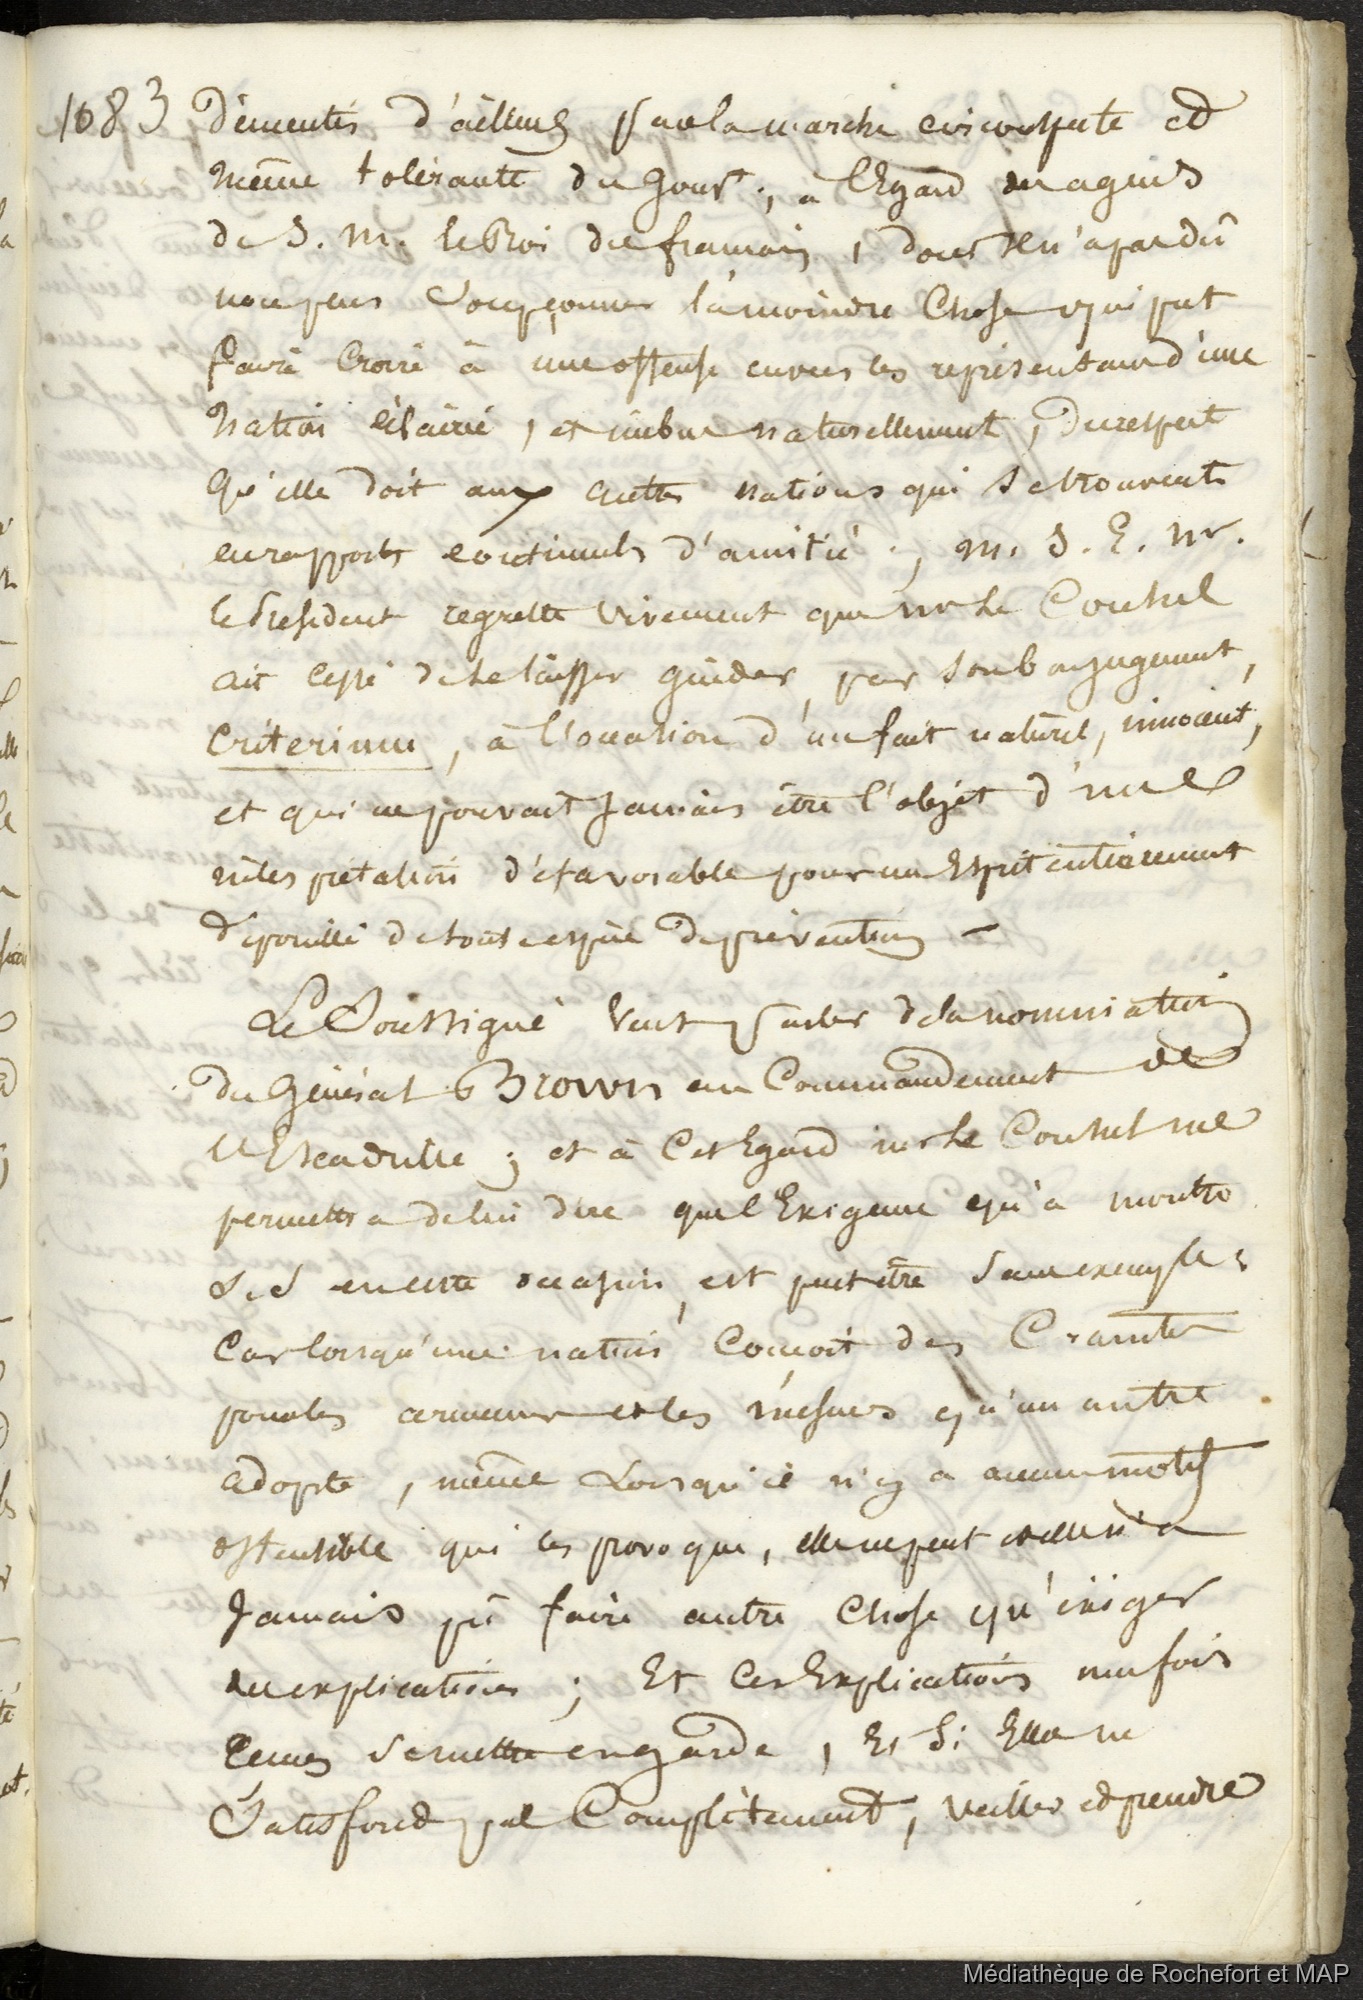 1083 Démentis d'ailleurs par la marche circonspecte et
même tolérante du Gouvt., à l'Egard des agens
de S. M. le Roi des français, dont il n'a pas dû
non plus soupçonner la moindre Chose qui put
faire Croire à une offense envers les représentans d'une
Nation éclairée, et imbue naturellement, du respect
Qu'elle doit aux autres nations qui se trouvent
en rapports continuels d'amitié ; M. S. E. Mr.
le Président regrette vivement que Mr le Consul
ait cessé de se laisser guider, par son bon jugement,
Criterium, à l'occasion d'un fait naturel, innocent,
et qui ne pouvait jamais être l'objet d'une
interprétation défavorable pour un Esprit entièrement
dépouillé de toute espèce de prévention –
Le Soussigné veut parler de la nomination
du Général Brown au Commandement de
l'Escadrille ; et à Cet Egard Mr le Consul me
permettra de lui dire que l'Exigence qu'a montré
S. S en cette occasion, est peut être sans exemple ;
Car lorsqu'une nation Conçoit des Craintes
pour les armemens et les mésures qu'un autre
adopte, même Lorsqu'il n'y a aucun motif
ostensible qui les provoque, elle ne peut et elle n'a
Jamais pû faire autre Chose qu'éxiger
des explications ; Et Ces Explications une fois
se mettre en garde, Et Si Elles ne
Satisfont pas Complètement, veiller et prendre
Médiathèque de Rochefort et MAP